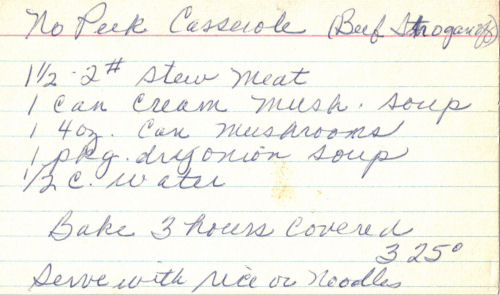 No Peek Casserole (Beef Stroganoff)
1 1/2 - 2# Stew Meat
1 Can Cream Mush. Soup
1 4oz. Can Mushrooms
1 pkg. dry onion soup
1/2 c. water
Bake 3 hours Covered
325°
Serve with rice or Noodles